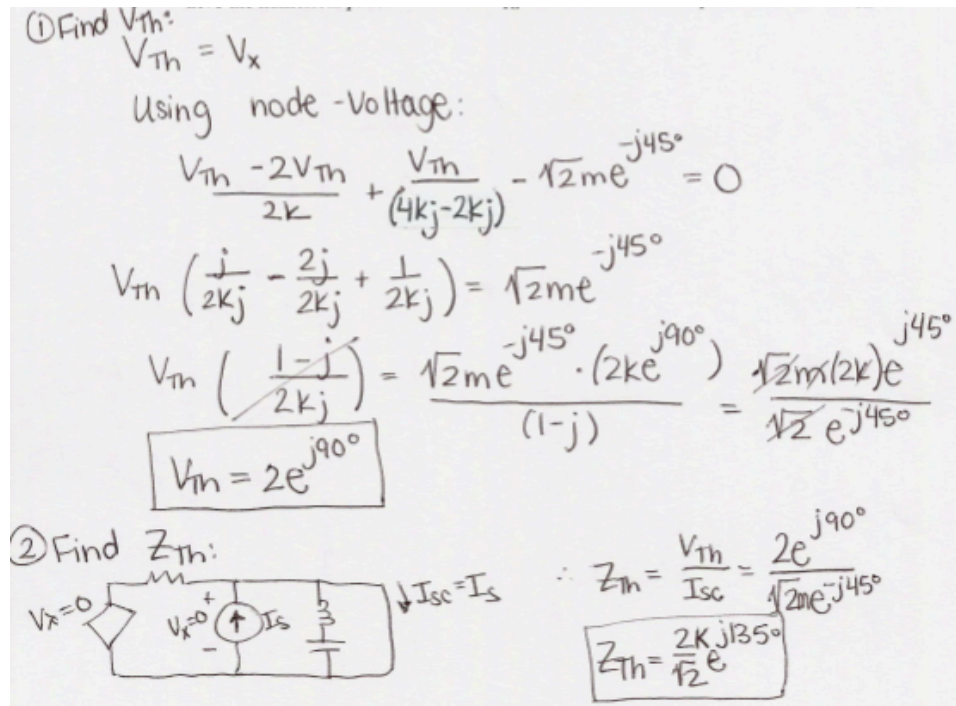 ① Find V_Th:
V_Th = V_x
Using node-voltage:
(V_Th - 2V_Th)/2k + V_Th/(4kj-2kj) - √2me^(-j45°) = 0
V_Th (j/2kj - 2j/2kj + 1/2kj) = √2me^(-j45°)
V_Th ((1-j)/2kj) = √2me^(-j45°) · (2ke^(j90°)) / (1-j) = √2m(2k)e^(j45°) / √2 e^(-j45°)
V_Th = 2e^(j90°)
② Find Z_Th:
V_x=0
+
V_x=0
-
I_s
I_sc = I_s
∴ Z_Th = V_Th/I_sc = 2e^(j90°)/√2me^(-j45°)
Z_Th = 2k/√2 e^(j135°)